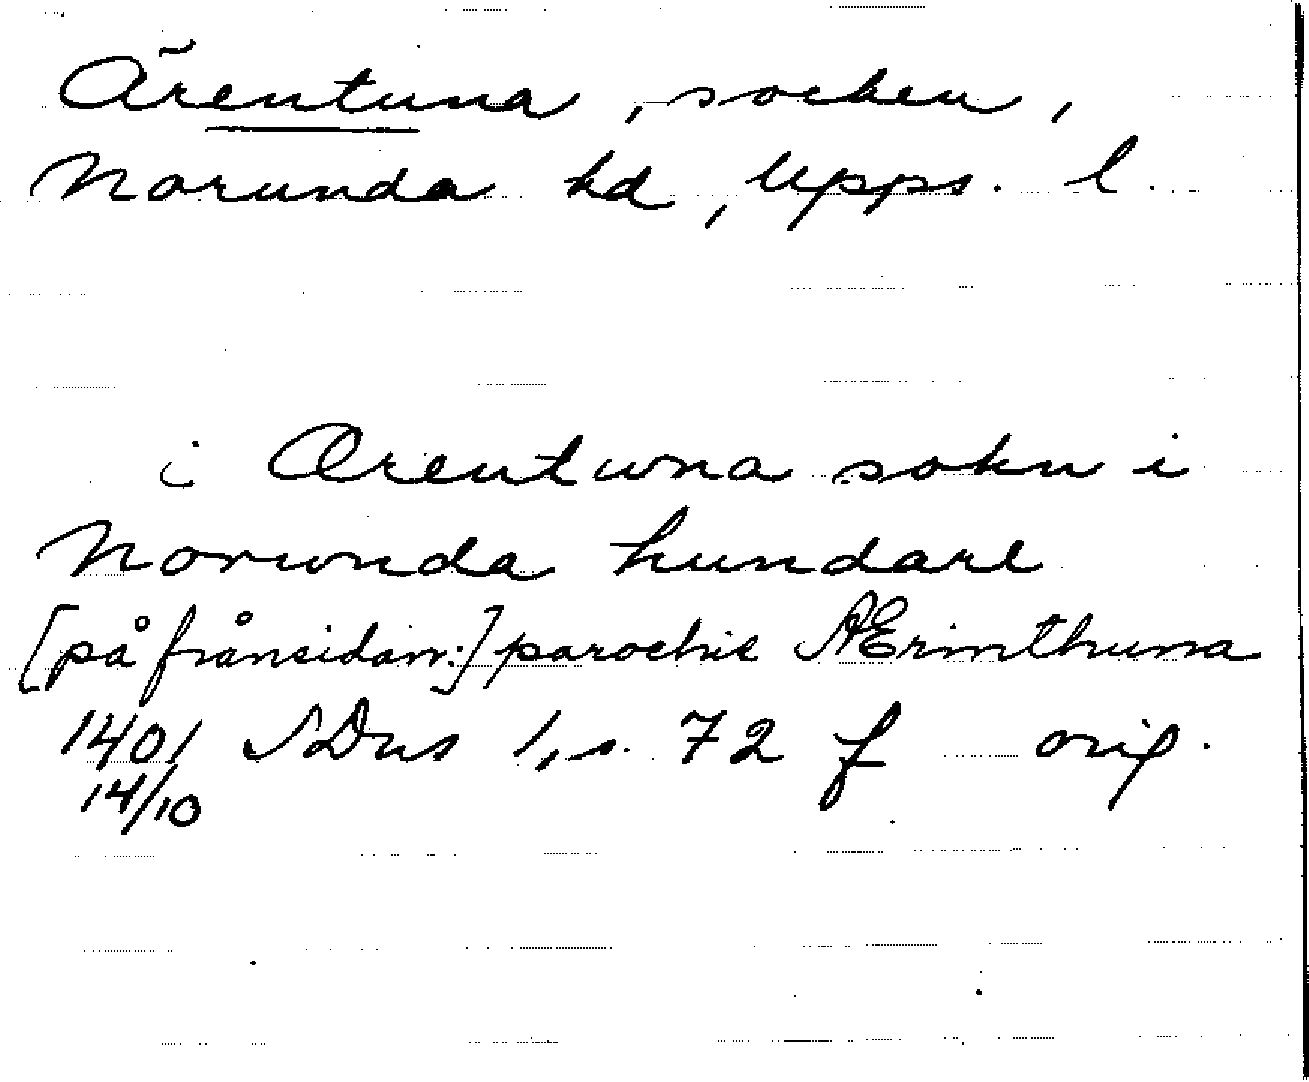 Ärentuna, socken,
Norunda hd, Upps. l.
i Ærentwna sokn i
Norwnda hundare
[på frånsidan:] parochie ÆErinthuna
1401 SDns 1, s. 72 f orig.
14/10